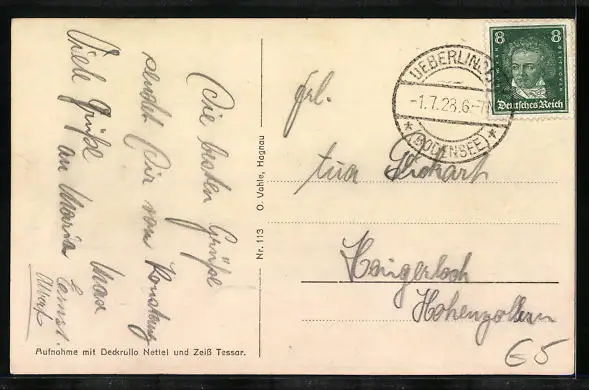 Die besten Grüße
sendet Dir von Konstanz
Max
Viele Grüße
an Maria
Ernst.
Aufnahme mit Deckrullo Nettel und Zeiß Tessar.
Nr. 113 O. Vahle, Hagnau
UEBERLINGEN
-1.7.28.6-7
(BODENSEE)
8 8
BEETHOVEN
Deutsches Reich
Frl.
Haigerloch
Hohenzollern
65